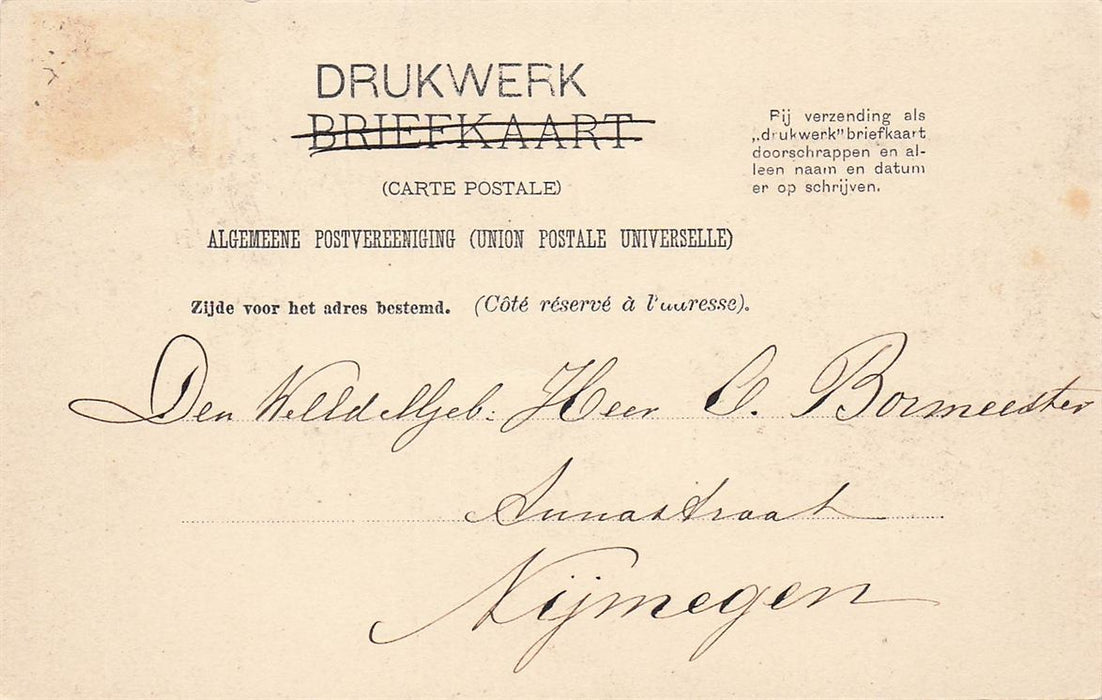 DRUKWERK
BRIEFKAART
(CARTE POSTALE)
Bij verzending als
„drukwerk” briefkaart
doorschrappen en al-
leen naam en datum
er op schrijven.
ALGEMEENE POSTVEREENIGING (UNION POSTALE UNIVERSELLE)
Zijde voor het adres bestemd. (Côté réservé à l'adresse).
Den Heer C. Bormeester
Annastraat
Nijmegen